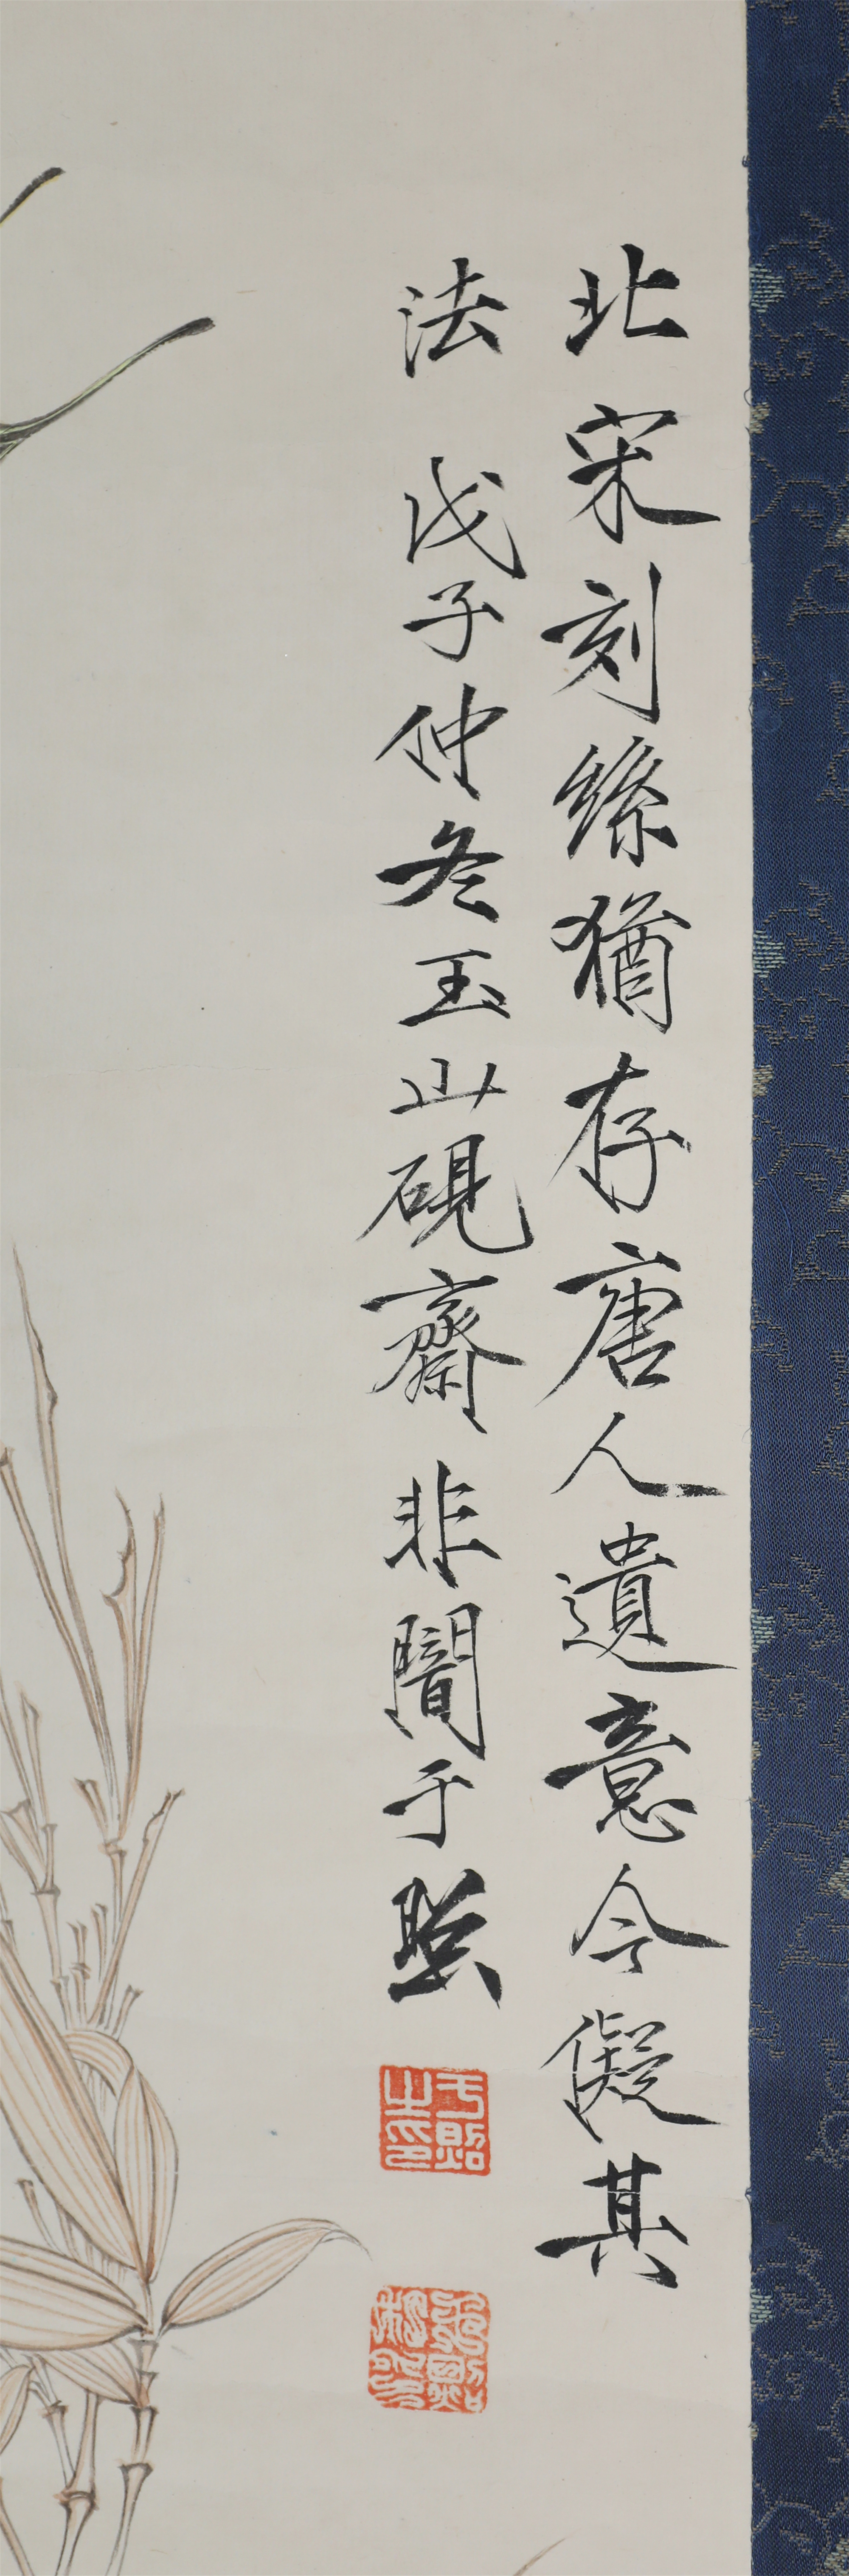 北宋刻絲猶存唐人遺意今儗其
法 戊子仲冬玉山硯齋非闇于照
于照之印